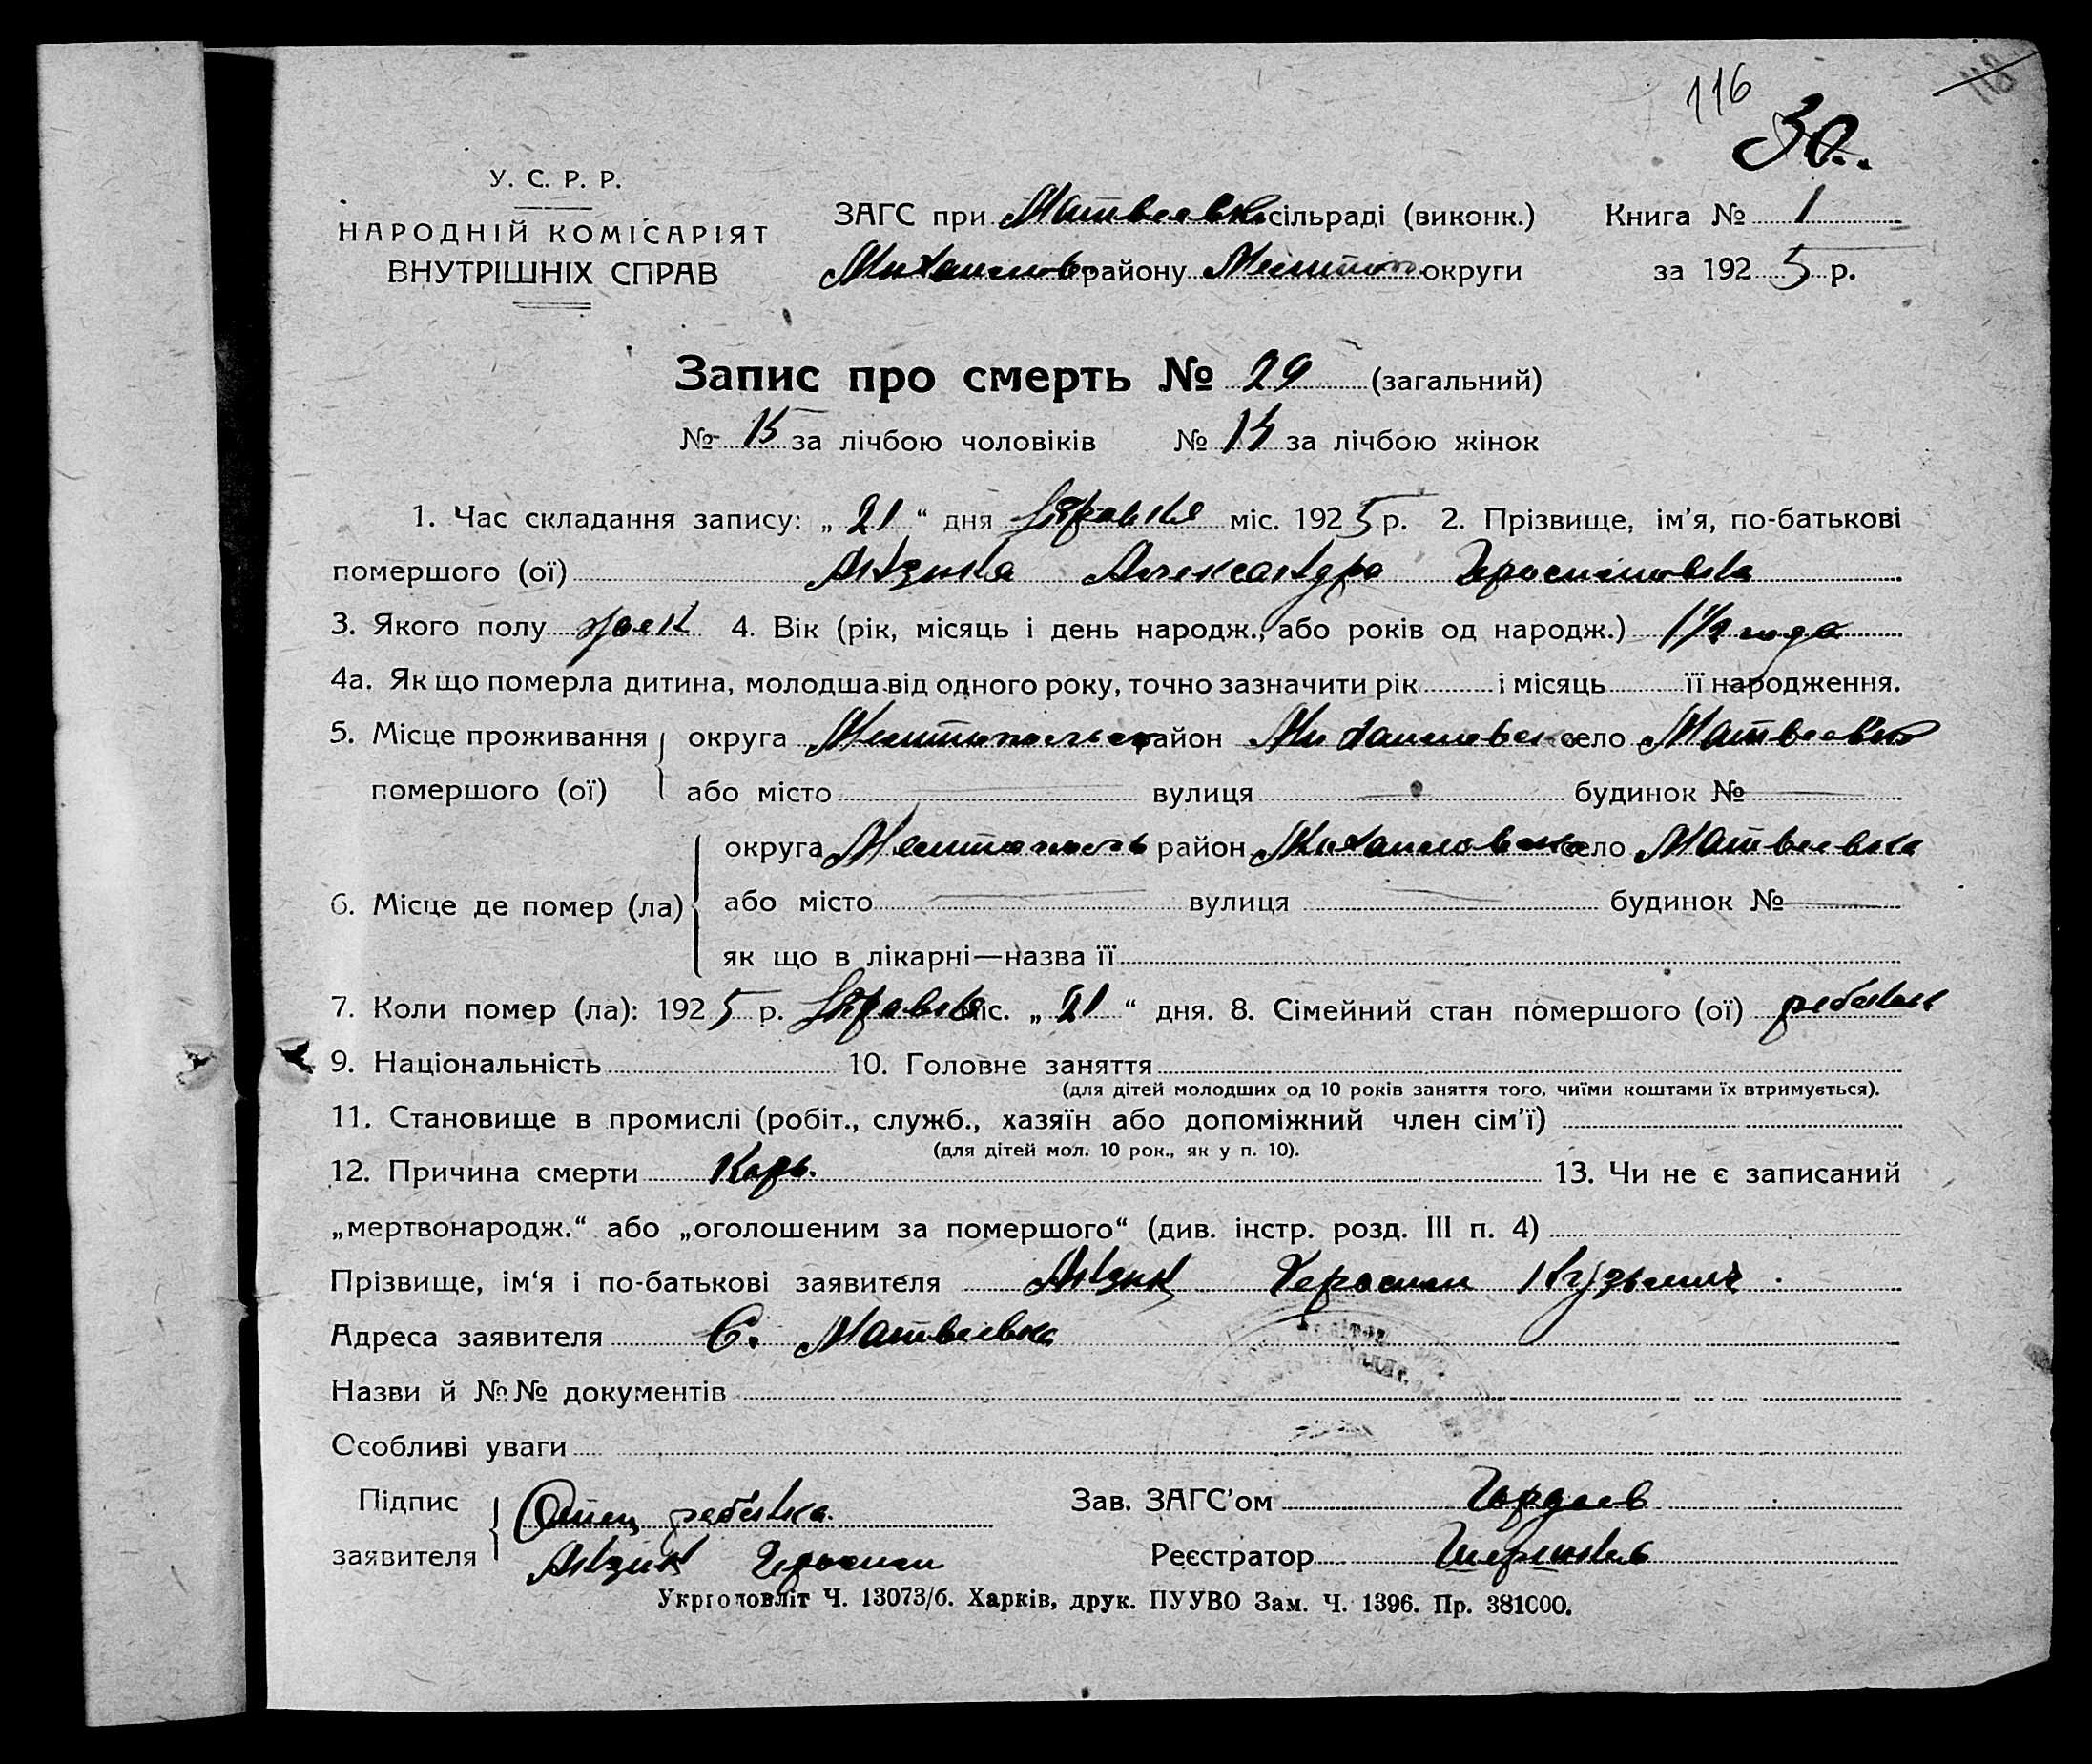 116
118
30.
У. С. Р. Р.
НАРОДНІЙ КОМІСАРІЯТ
ВНУТРІШНІХ СПРАВ
ЗАГС при Матвеевск сільраді (виконк.)
Михайловс району Мелитоп округи
Книга № 1
за 1925 р.
Запис про смерть № 29 (загальний)
№ 15 за лічбою чоловіків № 14 за лічбою жінок
1. Час складання запису: „ 21 “ дня міс. 1925 р. 2. Прізвище, ім’я, по-батькові
помершого (ої) Александра Герасимовна
3. Якого полу женск 4. Вік (рік, місяць і день народж., або років од народж.) 1 1/2 года
4а. Як що померла дитина, молодша від одного року, точно зазначити рік і місяць її народження.
5. Місце проживання округа Мелитопольск район Михайловск село Матвеевка
помершого (ої) або місто вулиця будинок №
округа Мелитополь район Михайловка село Матвеевка
6. Місце де помер (ла) або місто вулиця будинок №
як що в лікарні—назва її
7. Коли помер (ла): 1925 р. міс. „ 21 “ дня. 8. Сімейний стан помершого (ої) ребенок
9. Національність 10. Головне заняття
(для дітей молодших од 10 років заняття того, чиїми коштами їх втримується).
11. Становище в промислі (робіт., служб., хазяїн або допоміжний член сім’ї)
(для дітей мол. 10 рок., як у п. 10).
12. Причина смерти Корь. 13. Чи не є записаний
„мертвонародж.“ або „оголошеним за помершого“ (див. інстр. розд. III п. 4)
Прізвище, ім‘я і по-батькові заявителя Герасим Кузьмич
Адреса заявителя С. Матвеевка
Назви й №№ документів
Особливі уваги
Підпис Отец ребёнка. Зав. ЗАГС’ом Гордеев
заявителя Герасим Реєстратор
Укрголовліт Ч. 13073/б. Харків, друк. ПУУВО Зам. Ч. 1396. Пр. 381000.